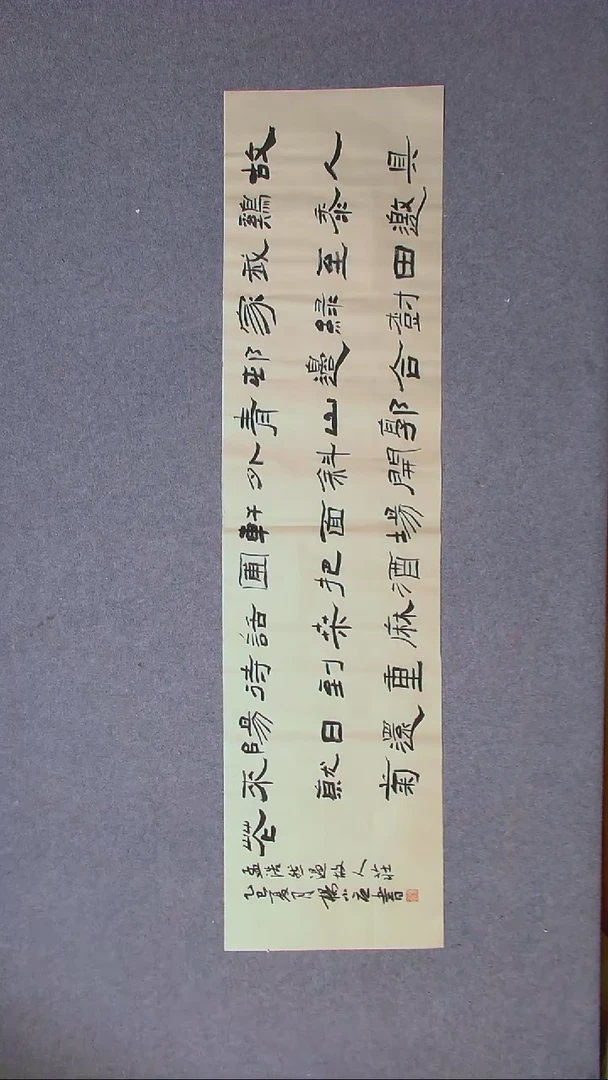 故人具
鷄黍邀
我至田
家綠樹
邨邊合
青山郭
外斜開
軒面場
圃把酒
話桒麻
待到重
陽日還
來就菊
花
孟浩然過故人莊
乙巳夏月楊小書